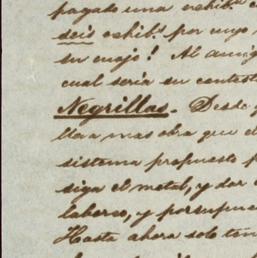 pagado una exhib⁠ⁿ
seis exhib⁠ˢ por cuyo
su enojo! Al amig
cual seria su contest
Negrillas. Desde
lleva mas obra que el
sistema propuesto p
siga el metal, y dar
laboreo, y por supue
Hasta ahora solo ten